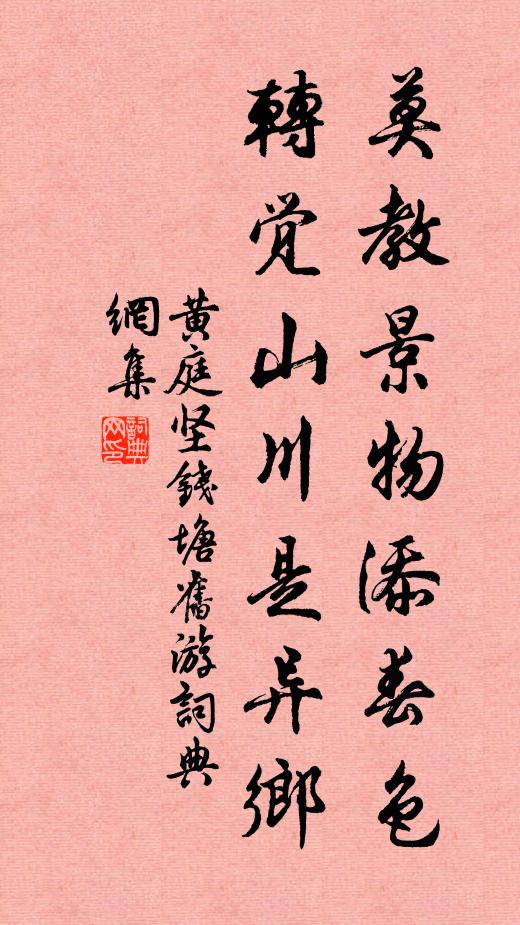 莫教景物添春色
轉觉山川是异鄉
黄庭坚錢塘舊游詞典
網集
詞典網印